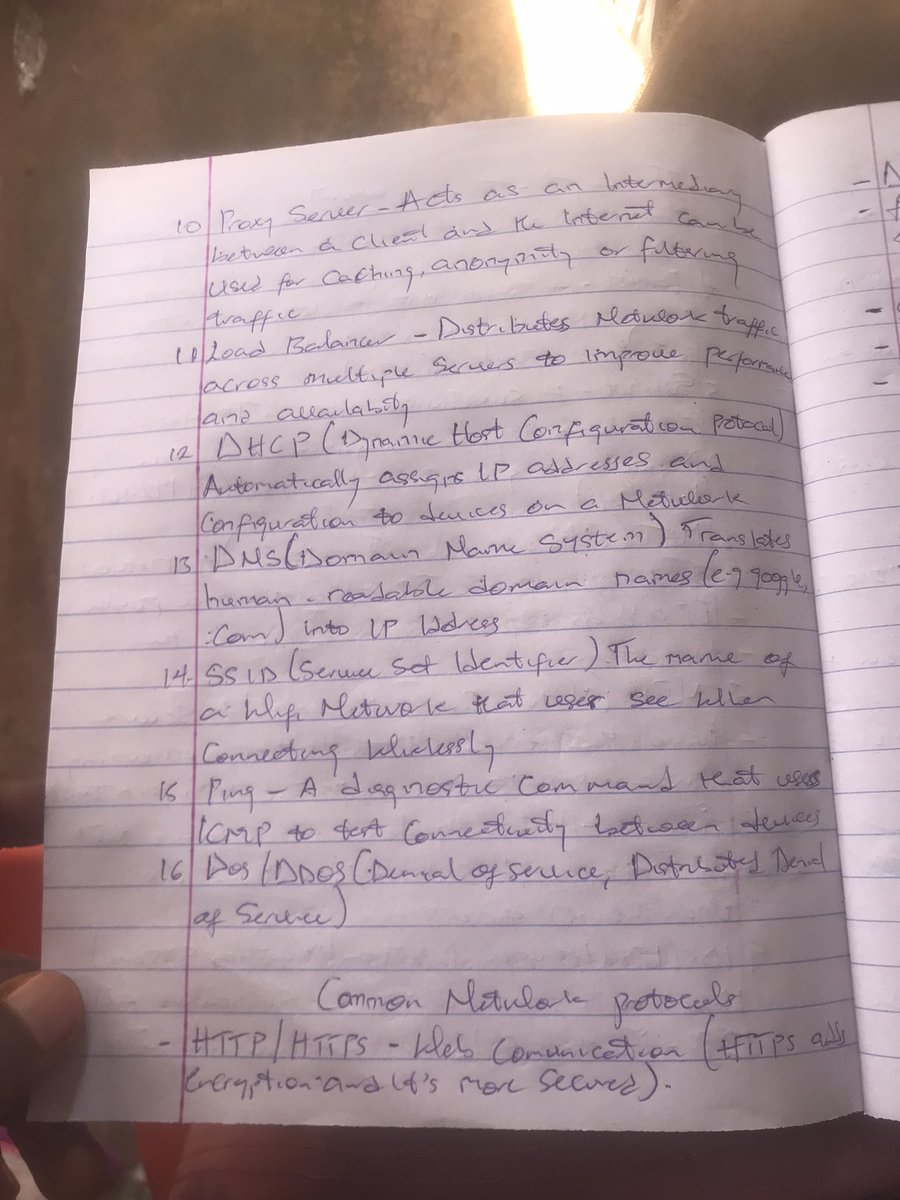 10 Proxy Server - Acts as an Intermediary
between a Client and the Internet can be
used for Caching, anonymity or filtering
traffic
11 Load Balancer - Distributes Network traffic
across multiple Servers to improve performance
and availability
12 DHCP (Dynamic Host Configuration protocal)
Automatically assigns IP addresses and
Configuration to devices on a Network
13 DNS (Domain Name System) Translates
human-readable domain names (e.g google
.Com) into IP Address
14. SSID (Service Set Identifier) The name of
a Wifi Network that user see When
Connecting Wirelessly
15 Ping - A diagnostic Command that uses
ICMP to test Connectivity between devices
16 Dos/DDOS (Denial of service, Distributed Denial
of Service)
Common Network protocals
- HTTP/HTTPS - Web Comunication (HTTPS adds
Encryption and it's more Secured).